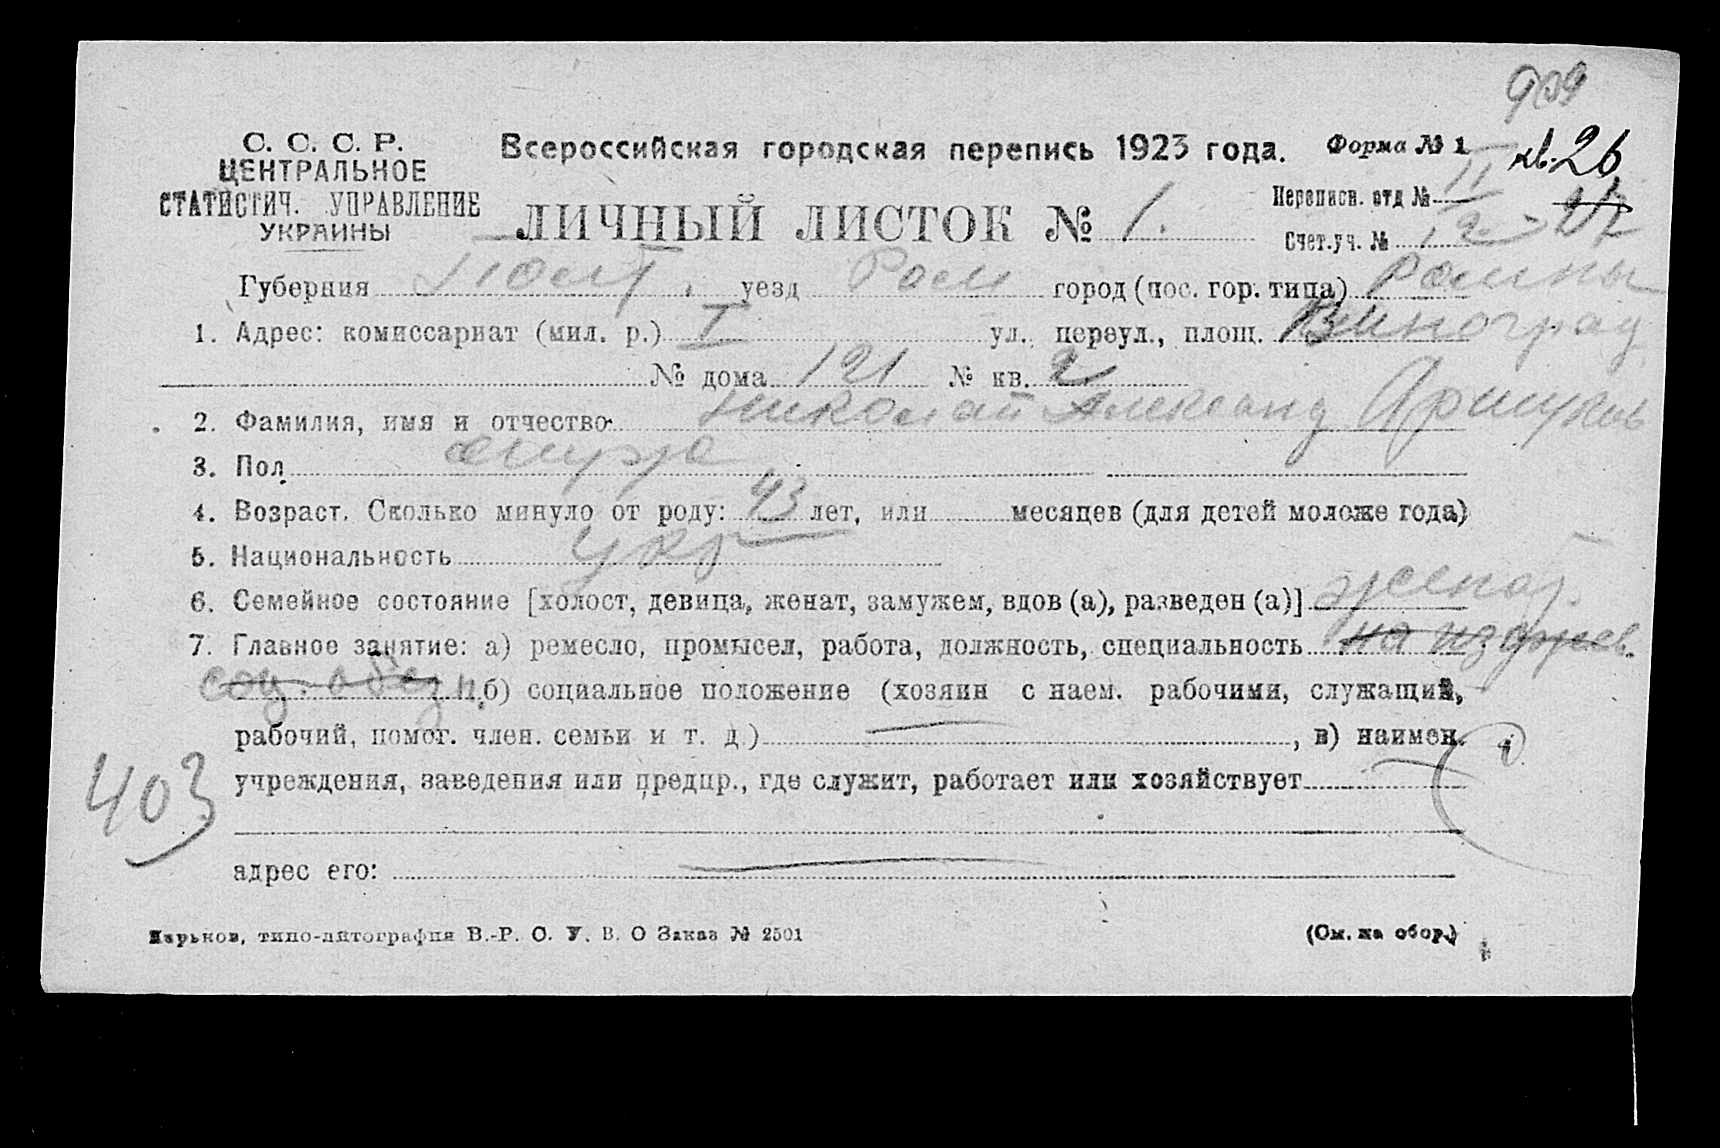 909
С. С. С. Р.
ЦЕНТРАЛЬНОЕ
СТАТИСТИЧ. УПРАВЛЕНИЕ
УКРАИНЫ
Всероссийская городская перепись 1923 года.
Форма № 1
кв. 26
ЛИЧНЫЙ ЛИСТОК № 1.
Переписн. отд № II
Счет.уч. № 2
Губерния Полт. уезд Ром город (пос. гор. типа) Ромны
1. Адрес: комиссариат (мил. р.) I ул., переул., площ. Виноград
№ дома 121 № кв. 2
2. Фамилия, имя и отчество Николай Александ
3. Пол мужо
4. Возраст. Сколько минуло от роду: 43 лет, или месяцев (для детей моложе года)
5. Национальность укр
6. Семейное состояние [холост, девица, женат, замужем, вдов (а), разведен (а)] женат.
7. Главное занятие: а) ремесло, промысел, работа, должность, специальность на иждив.
соц. обезп. б) социальное положение (хозяин с наем. рабочими, служащий,
рабочий, помог. член. семьи и т. д.) , в) наимен.
учреждения, заведения или предпр., где служит, работает или хозяйствует
403
адрес его:
Харьков, типо-литография В.-Р. О. У. В. О Заказ № 2501
(См. на обор.)